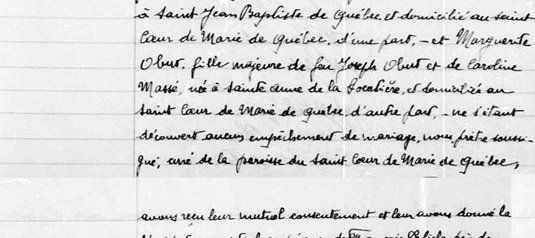 à Saint Jean Baptiste de Québec et domicilié au saint
Cœur de Marie de Québec, d'une part, - et Marguerite
Obut, fille majeure de feu Joseph Obut et de Caroline
Massé, née à Sainte Anne de la Pocatière, et domiciliée au
Saint Cœur de Marie de Québec, d'autre part, - ne s'étant
découvert aucun empêchement de mariage, nous, prêtre soussi-
gné, curé de la paroisse du Saint Cœur de Marie de Québec,
avons reçu leur mutuel consentement et leur avons donné la